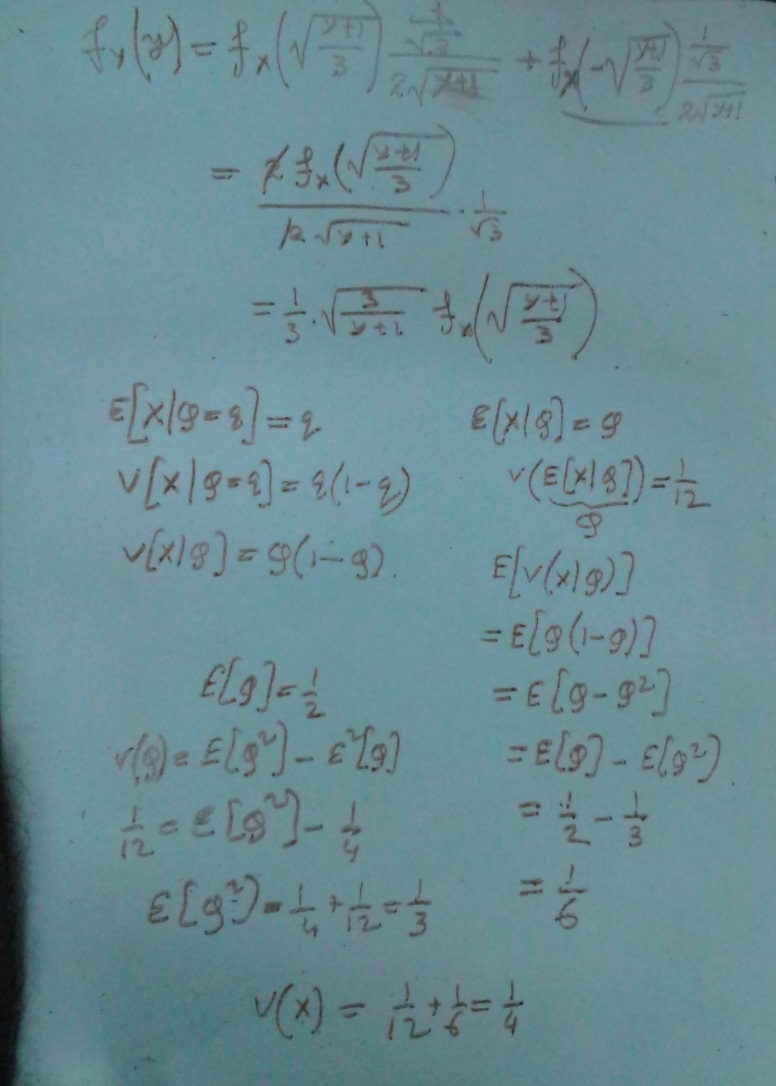 f_Y(y) = f_X(√((y+1)/3)) (1/√3)/(2√(y+1)) + f_X(-√((y+1)/3)) (1/√3)/(2√(y+1))
= 2 f_X(√((y+1)/3)) / (2√(y+1)) · 1/√3
= 1/3 · √(3/(y+1)) f_X(√((y+1)/3))
E[X|Q=q] = q
V[X|Q=q] = q(1-q)
V[X|Q] = Q(1-Q).
E[Q] = 1/2
V(Q) = E[Q²] - E²[Q]
1/12 = E[Q²] - 1/4
E[Q²] = 1/4 + 1/12 = 1/3
E[X|Q] = Q
V(E[X|Q]) = 1/12
Q
E[V(X|Q)]
= E[Q(1-Q)]
= E[Q - Q²]
= E[Q] - E(Q²)
= 1/2 - 1/3
= 1/6
V(X) = 1/12 + 1/6 = 1/4